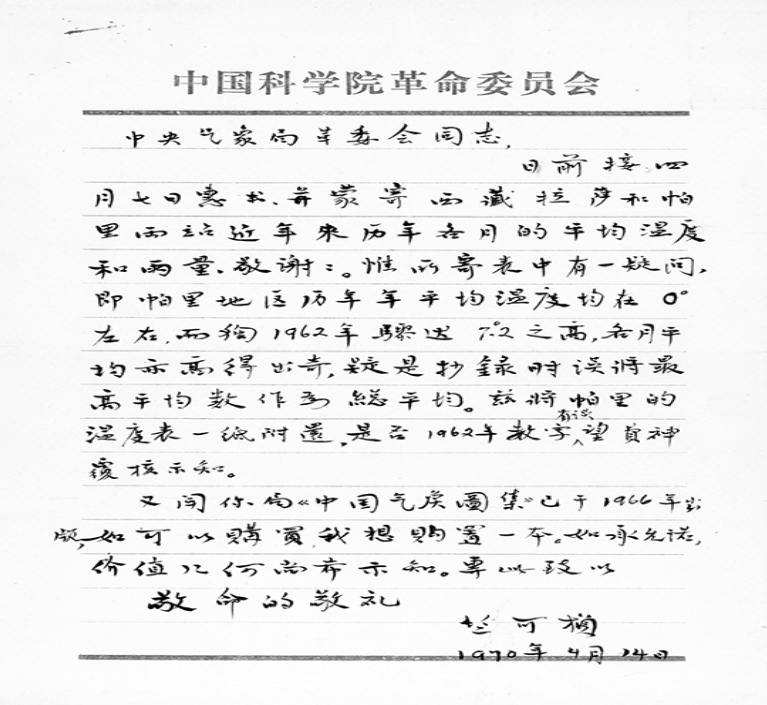 中国科学院革命委员会
中央气象局革委会同志,
日前接四
月七日惠书、并蒙寄西藏拉萨和帕
里两站近年来历年各月的平均温度
和雨量、敬谢:。惟所寄表中有一疑问,
即帕里地区历年年平均温度均在0°
左右,而独1962年骤达7.°2之高,各月平
均亦高得出奇,疑是抄錄时误将最
高平均数作为総平均。兹将帕里的
有误
温度表一纸附還,是否1962年数字,望費神
覆核示知。
又闻你局《中国气候圖集》已于1966年出
版,如可以購買,我想购置一本。如承允诺,
价值几何尚希示知。專此致以
敬命的敬礼
竺可桢
1970年4月14日